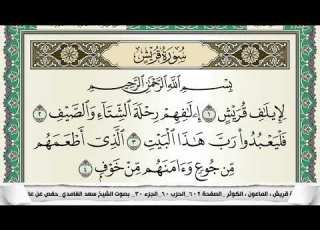 سُورَةُ قُرَيْشٍ
بِسْمِ اللَّهِ الرَّحْمَٰنِ الرَّحِيمِ
لِإِيلَٰفِ قُرَيْشٍ ١ إِۦلَٰفِهِمْ رِحْلَةَ الشِّتَاءِ وَالصَّيْفِ ٢
فَلْيَعْبُدُوا۟ رَبَّ هَٰذَا الْبَيْتِ ٣ الَّذِىٓ أَطْعَمَهُم
مِّن جُوعٍ وَءَامَنَهُم مِّنْ خَوْفٍۭ ٤
قريش ، الماعون ، الكوثر _ الصفحة ٦٠٢ _ الحزب ٦٠ _ الجزء ٣٠ _ بصوت الشيخ سعد الغامدي_حفص عن عا